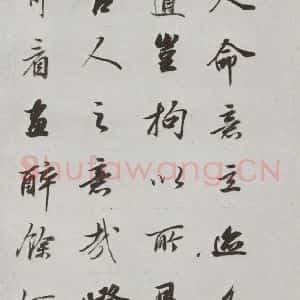 人命意立迹
道豈拘以所
古人之意哉
看画醉餘
Shufawang.CN